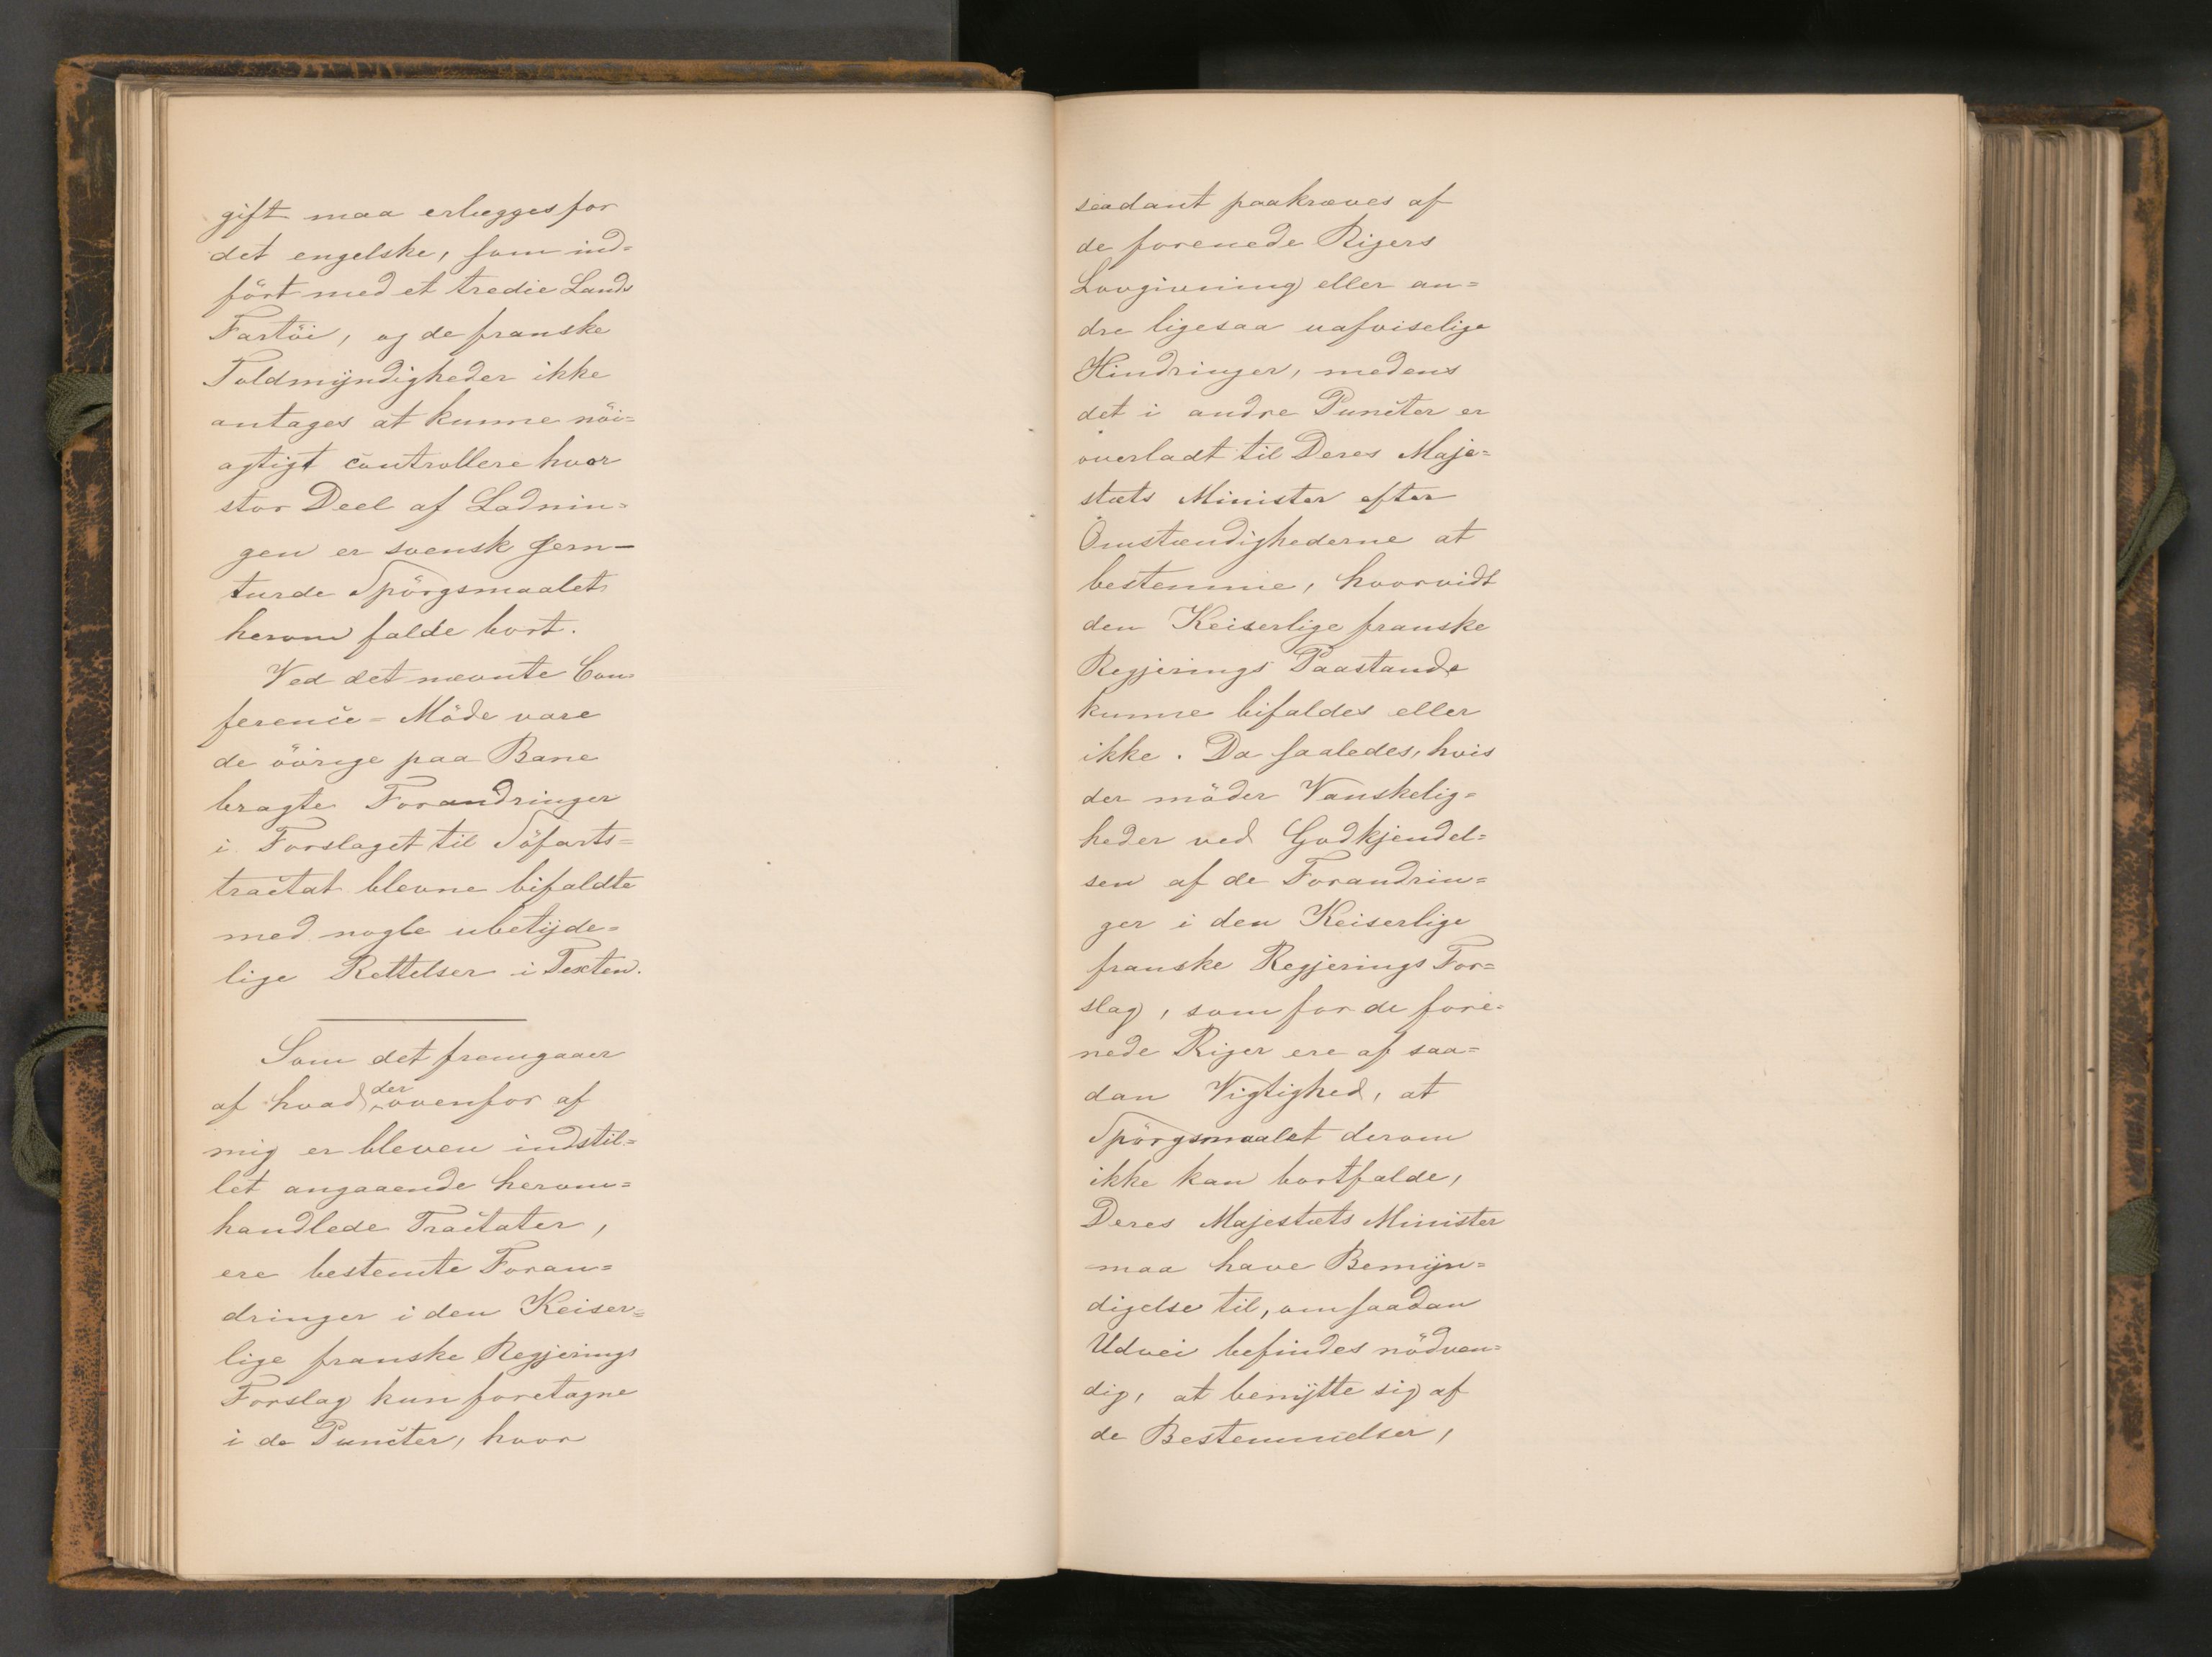 gift maa erlægges for
det engelske, som ind=
fört med et tredie Lands
Fartöi, og de franske
Toldmÿndigheder ikke
antages at kunne nöi=
agtigt controllere hvor
stor Deel af Ladnin=
gen er svensk Jern-
turde Spörgsmaalet
herom falde bort.
Ved det nævnte Con=
ference=Möde vare
de övrige paa Bane
bragte Forandringer
i Forslaget til Söfarts=
tractat blevne bifaldte
med nogle ubetÿde=
lige Rettelser i Texten.
Som det fremgaaer
af hvad der ovenfor af
mig er bleven indstil=
let angaaende herom=
handlede Tractater,
ere bestemte Foran=
dringer i den Keiser=
lige franske Regjerings
Forslag kun foretagne
i de Puncter, hvor
saadant paakræves af
de forenede Rigers
Lovgivning eller an=
dre ligesaa uafviselige
Hindringer, medens
det i andre Puncter er
overladt til Deres Maje=
stæts Minister efter
Omstændighederne at
bestemme, hvorvidt
den Keiserlige franske
Regjerings Paastande
kunne bifaldes eller
ikke. Da saaledes, hvis
der möder Vanskelig=
heder ved Godkjendel=
sen af de Forandrin=
ger i den Keiserlige
franske Regjerings For=
slag, som for de fore=
nede Riger ere af saa=
dan Vigtighed, at
Spörgsmaalet derom
ikke kan bortfalde,
Deres Majestæts Minister
maa have Bemÿn=
digelse til, om saadan
Udvei befindes nödven=
dig, at benÿtte sig af
de Bestemmelser,